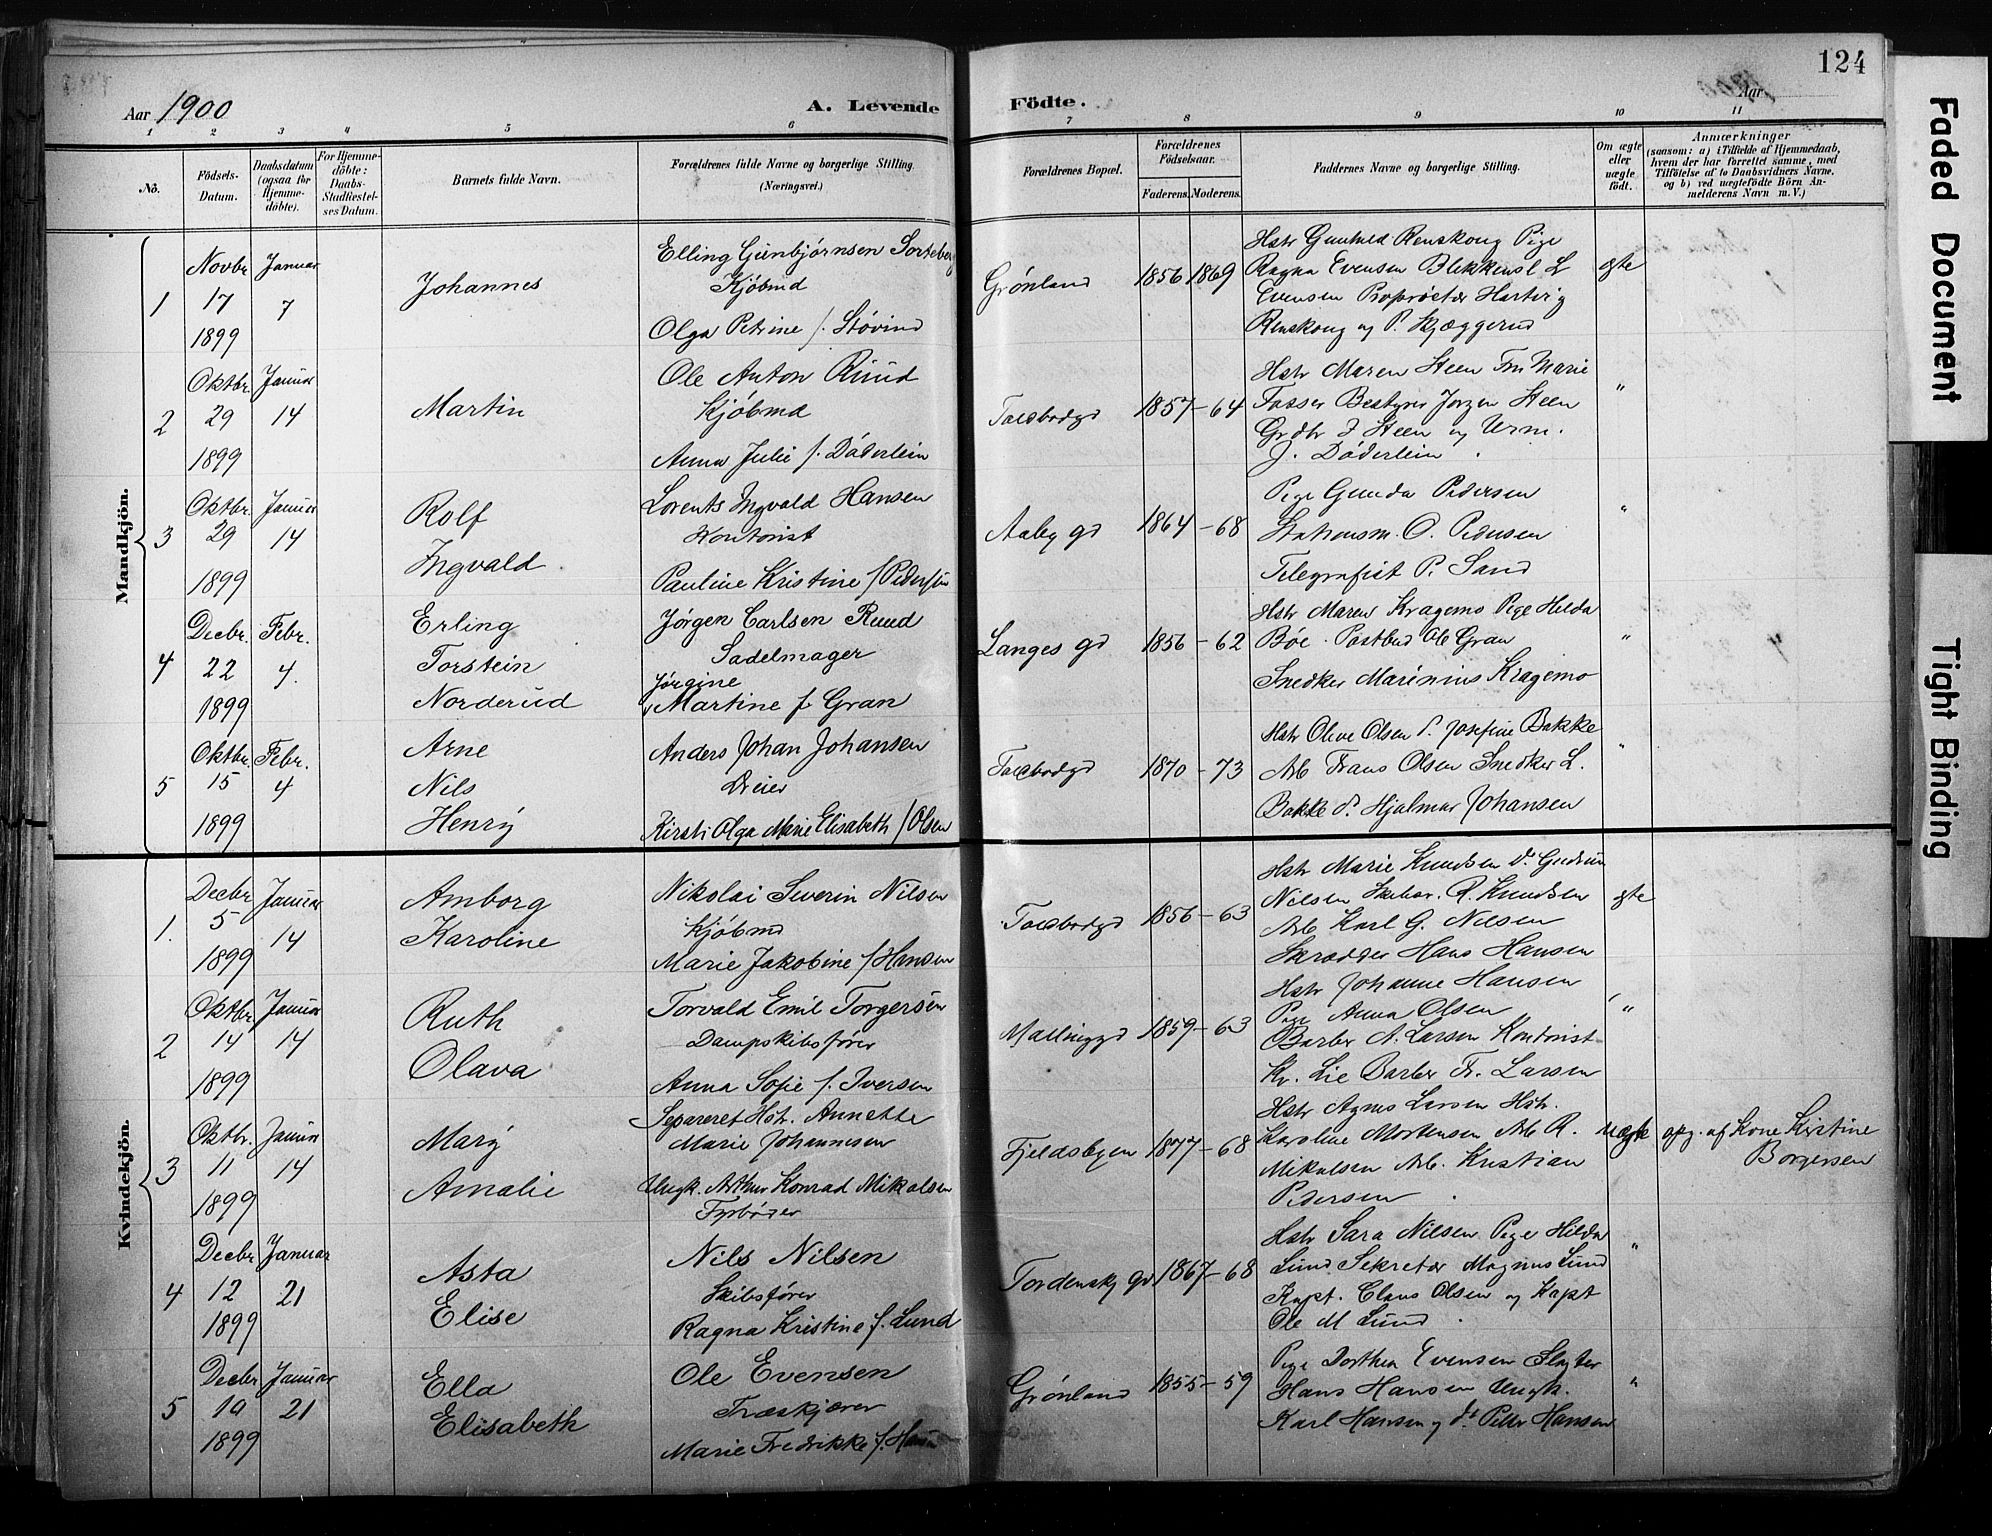 124
Aar 1900
A. Levende Födte.
Aar
1 2 3 4 5 6 7 8 9 10 11
No.
Födsels-Datum.
Daabsdatum (ogsaa for Hjemme-döbte).
For Hjemme-döbte: Daabs-Stadfæstel-ses Datum.
Barnets fulde Navn.
Forældrenes fulde Navne og borgerlige Stilling.
(Næringsvei.)
Forældrenes Bopæl.
Forældrenes Födselsaar.
Faderens. Moderens.
Faddernes Navne og borgerlige Stilling.
Om ægte eller uægte födt.
Anmærkninger
(saasom: a) i Tilfælde af Hjemmedaab, hvem der har forrettet samme, med Tilföielse af to Daabsvidners Navne, og b) ved uægtefödte Börn An-melderens Navn m. V.)
Mandkjön.
1
Novbr. 17 1899
Januar 7
Johannes
Elling Gunbjørnsen Sorteberg
Kjøbmd
Olga Petrine f. Støvind
Grønland
1856 1869
Hstr Gunhild Renskoug Pige
Ragna Evensen Blikkensl. L
Evensen Proprietær Hartvig
Renskoug og P. Skjæggerud
ægte
2
Oktbr. 29 1899
Januar 14
Martin
Ole Anton Ruud
Kjøbmd
Anna Julie f. Døderlein
Toldbodgd
1857-64
Hstr Maren Steen Fru Marie
Fosser Bestyrer Jørgen Steen
Grdbr J Steen og Urm.
J. Døderlein.
"
3
Oktbr. 29 1899
Januar 14
Rolf
Ingvald
Lorents Ingvald Hansen
Kontorist
Pauline Kristine f Pedersen
Aaby gd
1864-68
Pige Gunda Pedersen
Stationsm. O. Pedersen
Telegrafist P. Sand
"
4
Decbr. 22 1899
Febr. 4.
Erling
Torstein
Norderud
Jørgen Carlsen Ruud
Sadelmager
Jørgine
Martine f. Gran
Langes gd
1856-62
Hstr Maren Kragemo Pige Hilda
Bøe. Postbud Ole Gran
Snedker Marinius Kragemo
"
5
Oktbr. 15 1899
Febr. 4
Arne
Nils
Henry
Anders Johan Johansen
Dreier
Kirsti Olga Marie Elisabeth f Olsen
Toldbodgd
1870-73
Hstr Olive Olsen d. Josefine Bakke
Arb Frans Olsen Snedker L.
Bakke d. Hjalmar Johansen
"
Kvindekjön.
1.
Decbr 5 1899
Januar 14
Amborg
Karoline
Nikolai Severin Nilsen
Kjøbmd
Marie Jakobine f Hansen
Toldbodgd
1856-63
Hstr Marie Knudsen d. Gudrun
Nilsen Skibsr. R. Knudsen
Arb Karl G. Nilsen
Skrædder Hans Hansen
ægte
2
Oktbr. 14 1899
Januar 14
Ruth
Olava
Torvald Emil Torgersen
Dampskibsfører
Anna Sofie f. Iversen
Mallinggd
1859-63
Hstr Johanne Hansen
Pige Anna Olsen
Barber A. Larsen Kontorist
Kr. Lie Barber Fr. Larsen
"
3
Oktbr. 11 1899
Januar 14
Mary
Amalie
Separeret Hstr. Annette
Marie Johannesen
Ungk. Arthur Konrad Mikalsen
Fyrbøder
Fjeldsbyen
1877-68
Hstr Agnes Larsen Hstr.
Karoline Mortensen Arb R.
Mikalsen Arb. Kristian
Pedersen.
uægte
opg. af Kone Kirstine Borgersen
4
Decbr 12 1899
Januar 21
Asta
Elise
Nils Nilsen
Skibsfører
Ragna Kristine f. Lund
Tordensky gd
1867-68
Hstr Sara Nilsen Pige Hilda
Lund Sekretær Magnus Lund
Kapt. Claus Olsen og Kapt
Ole M Lund.
"
5
Decbr 19 1899
Januar 21
Ella
Elisabeth
Ole Evensen
Træskjærer
Marie Fredrikke f.
Grønland
1855-59
Pige Dorthea Evensen Slagter
Hans Hansen Ungk.
Karl Hansen og d. Petter Hansen
"
Faded Document
Tight Binding